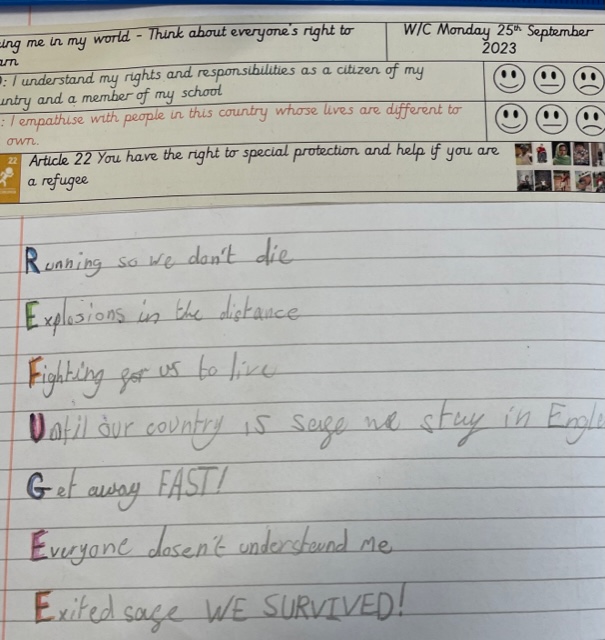 ing me in my world - Think about everyone's right to
arn
W/C Monday 25th September
2023
: I understand my rights and responsibilities as a citizen of my
untry and a member of my school
: I empathise with people in this country whose lives are different to
own.
22
Article 22 You have the right to special protection and help if you are
a refugee
Running so we don't die
Explosions in the distance
Fighting for us to live
Until our country is sage we stay in Engla
Get away FAST!
Everyone dosen't understand me
Exited sage WE SURVIVED!